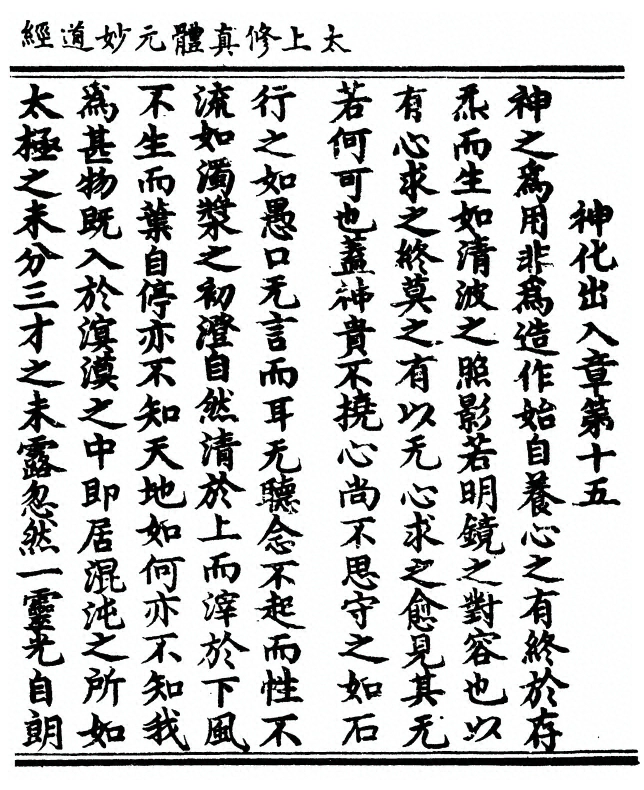 太上修真體元妙道經
神化出入章第十五
神之爲用非爲造作始自養心之有終於存
炁而生如清波之照影若明鏡之對容也以
有心求之終莫之有以无心求之愈見其无
若何可也蓋神貴不撓心尚不思守之如石
行之如愚口无言而耳无聽念不起而性不
流如濁漿之初澄自然清於上而滓於下風
不生而葉自停亦不知天地如何亦不知我
爲甚物既入於溟漠之中即居混沌之所如
太極之未分三才之未露忽然一靈光自朗